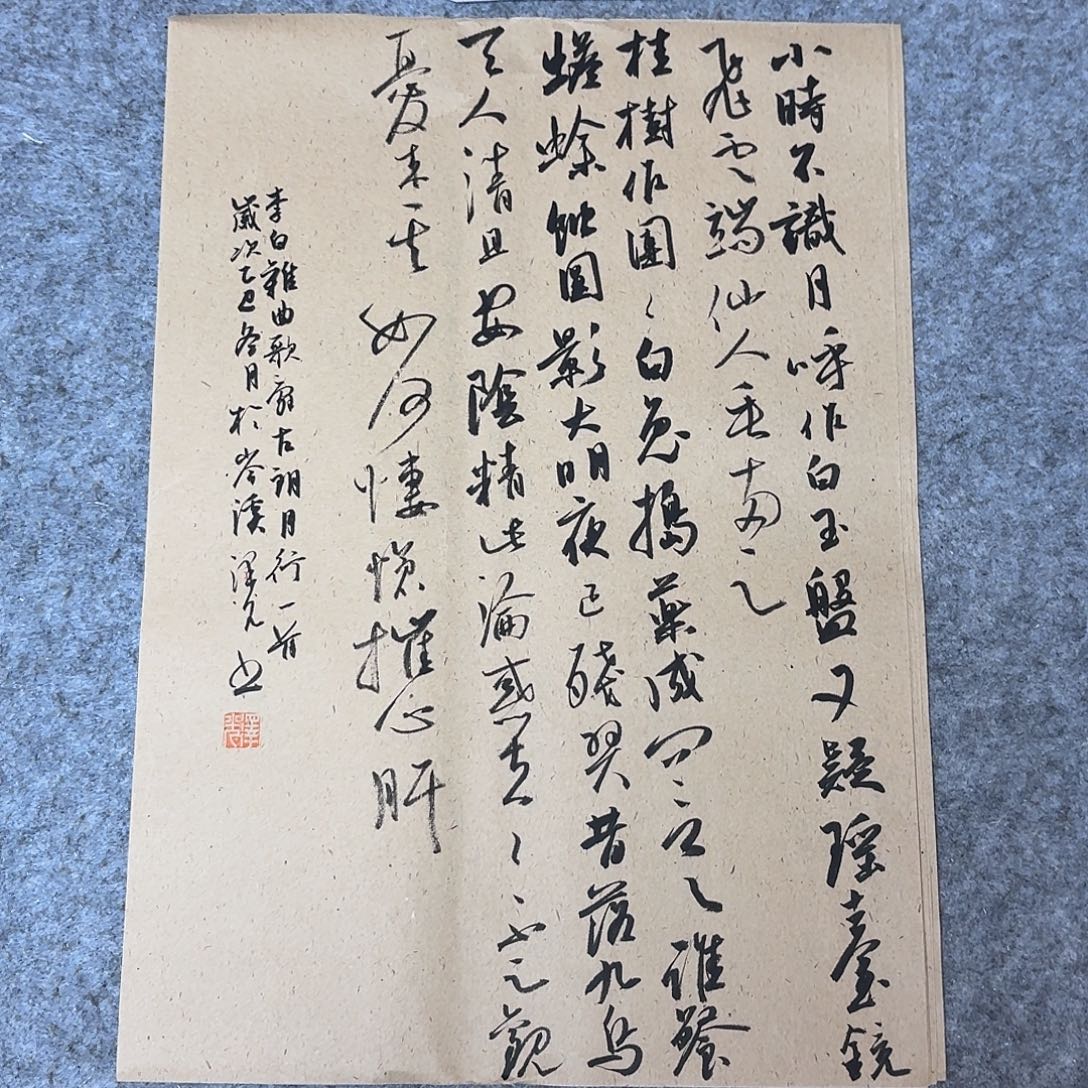 小時不識月呼作白玉盤又疑瑤臺鏡
飛雲端仙人垂兩足
桂樹作團〻白兔搗藥成問言與誰餐
蟾蜍蝕圓影大明夜已殘羿昔落九烏
天人清且安陰精此淪惑去〻不足觀
憂來其如何悽愴摧心肝
李白雜曲歌辭古朗月行一首
歲次乙巳冬月於岑溪澤書